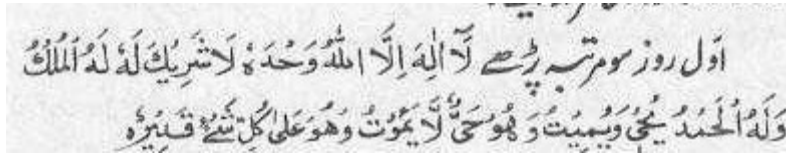 اوّل روز سو مرتبہ پڑھے لَآ اِلٰهَ اِلَّا اللّٰهُ وَحْدَهٗ لَا شَرِيْكَ لَهٗ لَهُ الْمُلْكُ
وَلَهُ الْحَمْدُ يُحْيِ وَيُمِيْتُ وَهُوَ حَيٌّ لَّا يَمُوْتُ وَهُوَ عَلٰى كُلِّ شَيْءٍ قَدِيْرٌ ہ